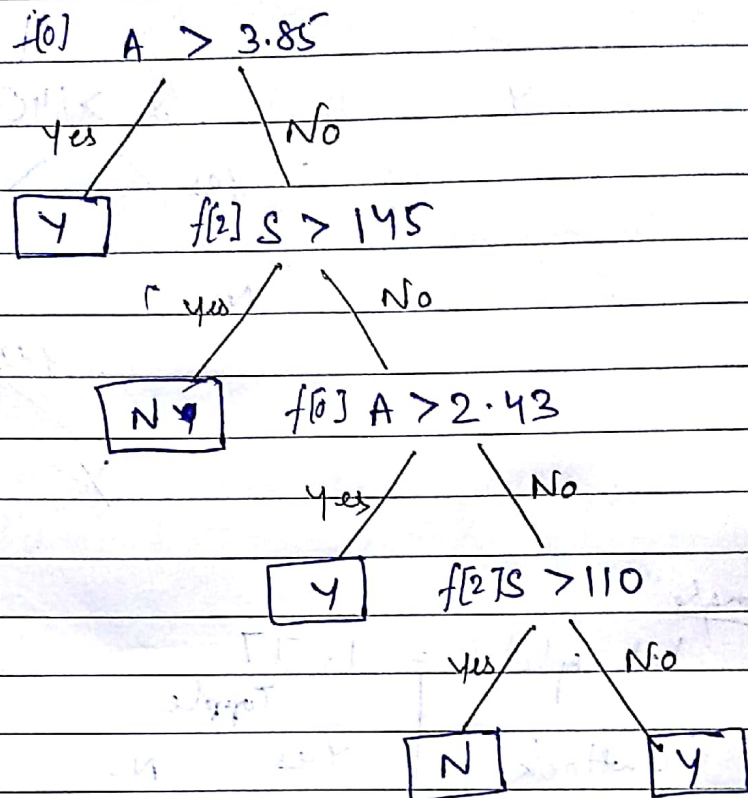 f[0] A > 3.85
Yes No
Y f[2] S > 145
yes No
N f[0] A > 2.43
Yes No
Y f[2]S > 110
yes No
N Y